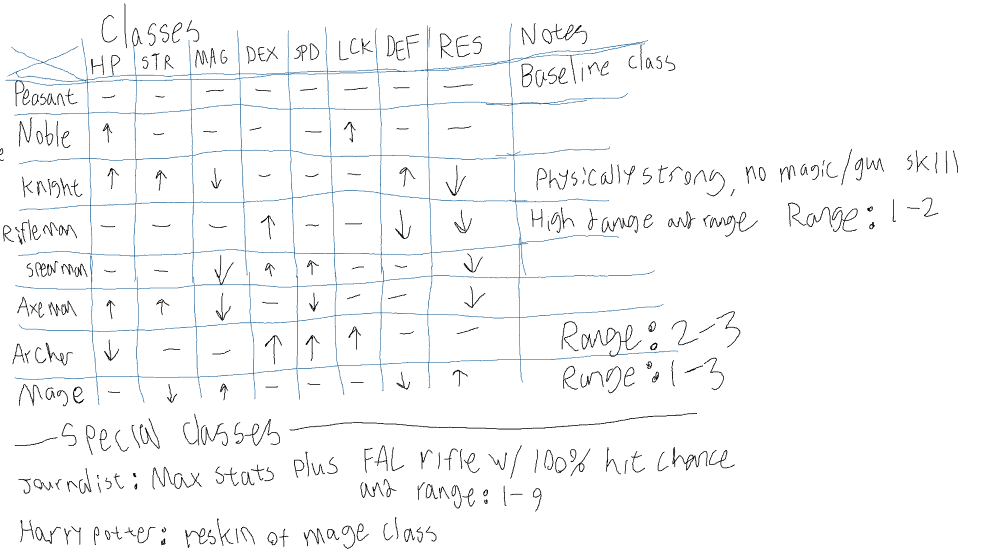 Classes
HP STR MAG DEX SPD LCK DEF RES Notes
Peasant – – – – – – – – Baseline class
Noble ↑ – – – – ↑ – –
Knight ↑ ↑ ↓ – – – ↑ ↓ Physically strong, no magic/gun skill
Rifleman – – – ↑ – – ↓ ↓ High damage and range Range: 1-2
Spearman – – ↓ ↑ ↑ – – ↓
Axeman ↑ ↑ ↓ – ↓ – – ↓
Archer ↓ – – ↑ ↑ ↑ – – Range: 2-3
Mage – ↓ ↑ – – – ↓ ↑ Range: 1-3
Special classes
Journalist: Max stats plus FAL rifle w/ 100% hit chance
and range: 1-9
Harry potter: reskin of mage class